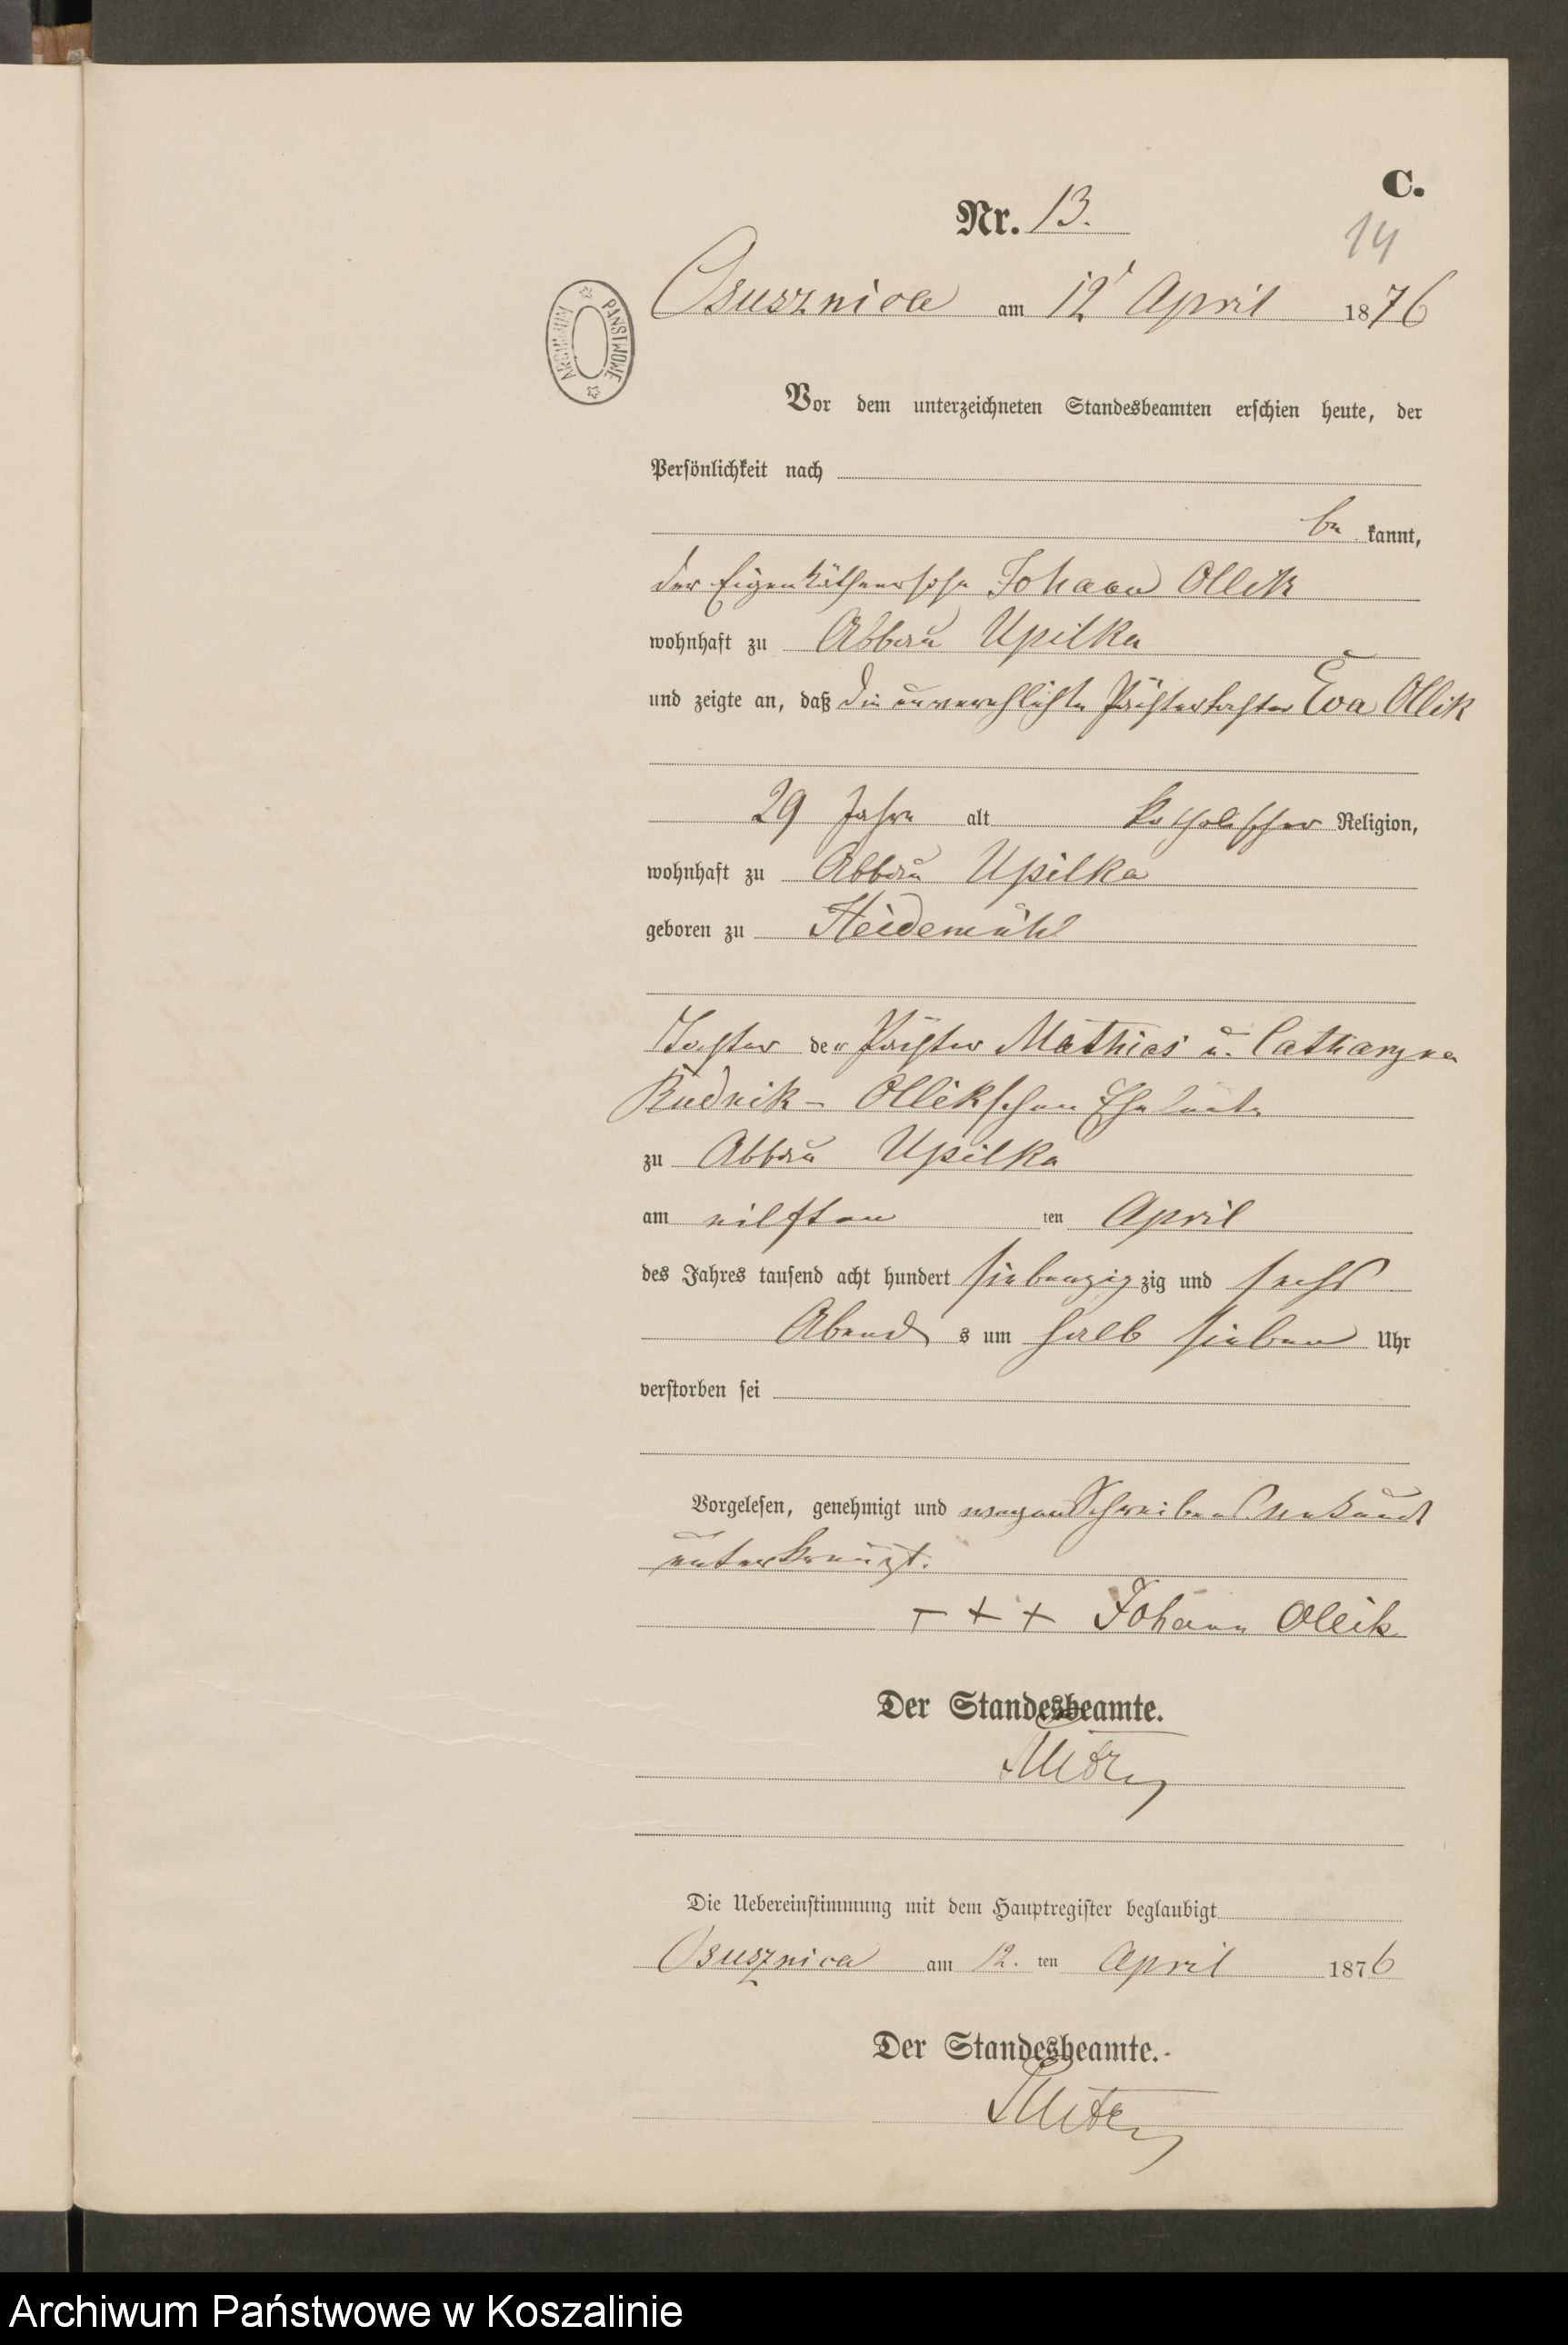 C.
Nr. 13.
14
ARCHIWUM PAŃSTWOWE
Osusznica am 12t April 1876
Vor dem unterzeichneten Standesbeamten erschien heute, der
Persönlichkeit nach
be kannt,
der Eigenkäthnersohn Johann Ollik
wohnhaft zu Abbau Upilka
und zeigte an, daß die unverehlichte Pächtertochter Eva Ollik
29 Jahre alt katholischer Religion,
wohnhaft zu Abbau Upilka
geboren zu Heidemühl
Tochter der Pächter Mathias u. Catharyna
Rudnik - Ollikschen Eheleute
zu Abbau Upilka
am eilften ten April
des Jahres tausend acht hundert siebenzig zig und sechs
Abend s um halb sieben Uhr
verstorben sei
Vorgelesen, genehmigt und wegen Schreibensunkunde
unterkreuzt.
+ + + Johann Ollik
Der Standesbeamte.
Die Uebereinstimmung mit dem Hauptregister beglaubigt
Osusznica am 12. ten April 1876
Der Standesbeamte.
Archiwum Państwowe w Koszalinie